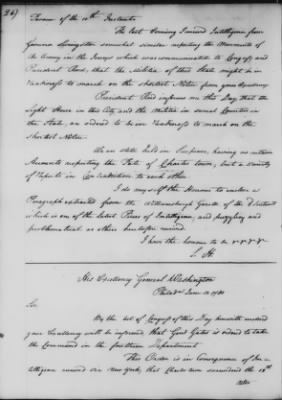 Favour of the 10th Instant.
The last Evening I received Intelligence from
Governor Livingston somewhat similar respecting the Movements of
the Enemy in the Jerseys which was communicated to Congress and
President Reed, that the Militia of this State might be in
readiness to march on the shortest Notice from your Excellency
President Reed informs me this Day, that the
Light Horse in this City and the Militia in several Counties in
the State, are ordered to be in readiness to march on the
shortest Notice.
We are still held in Suspense, having no certain
Accounts respecting the Fate of Charles town, but a variety
of Reports in Contradiction to each other.
I do myself the Honour to enclose a
Paragraph extracted from the Williamsburgh Gazette of the
which is one of the latest Pieces of Intelligence, and puzzling and
problematical as others heretofore received.
I have the honour to be
S. H.
His Excellency General Washington
Philada June 13. 1780
Sir,
By the Act of Congress of this Day herewith enclosed
your Excellency will be informed that Genl Gates is ordered to take
the Command in the southern Department.
This Order is in Consequence of In-
telligence received via New York, that Charles town surrendered the 12th